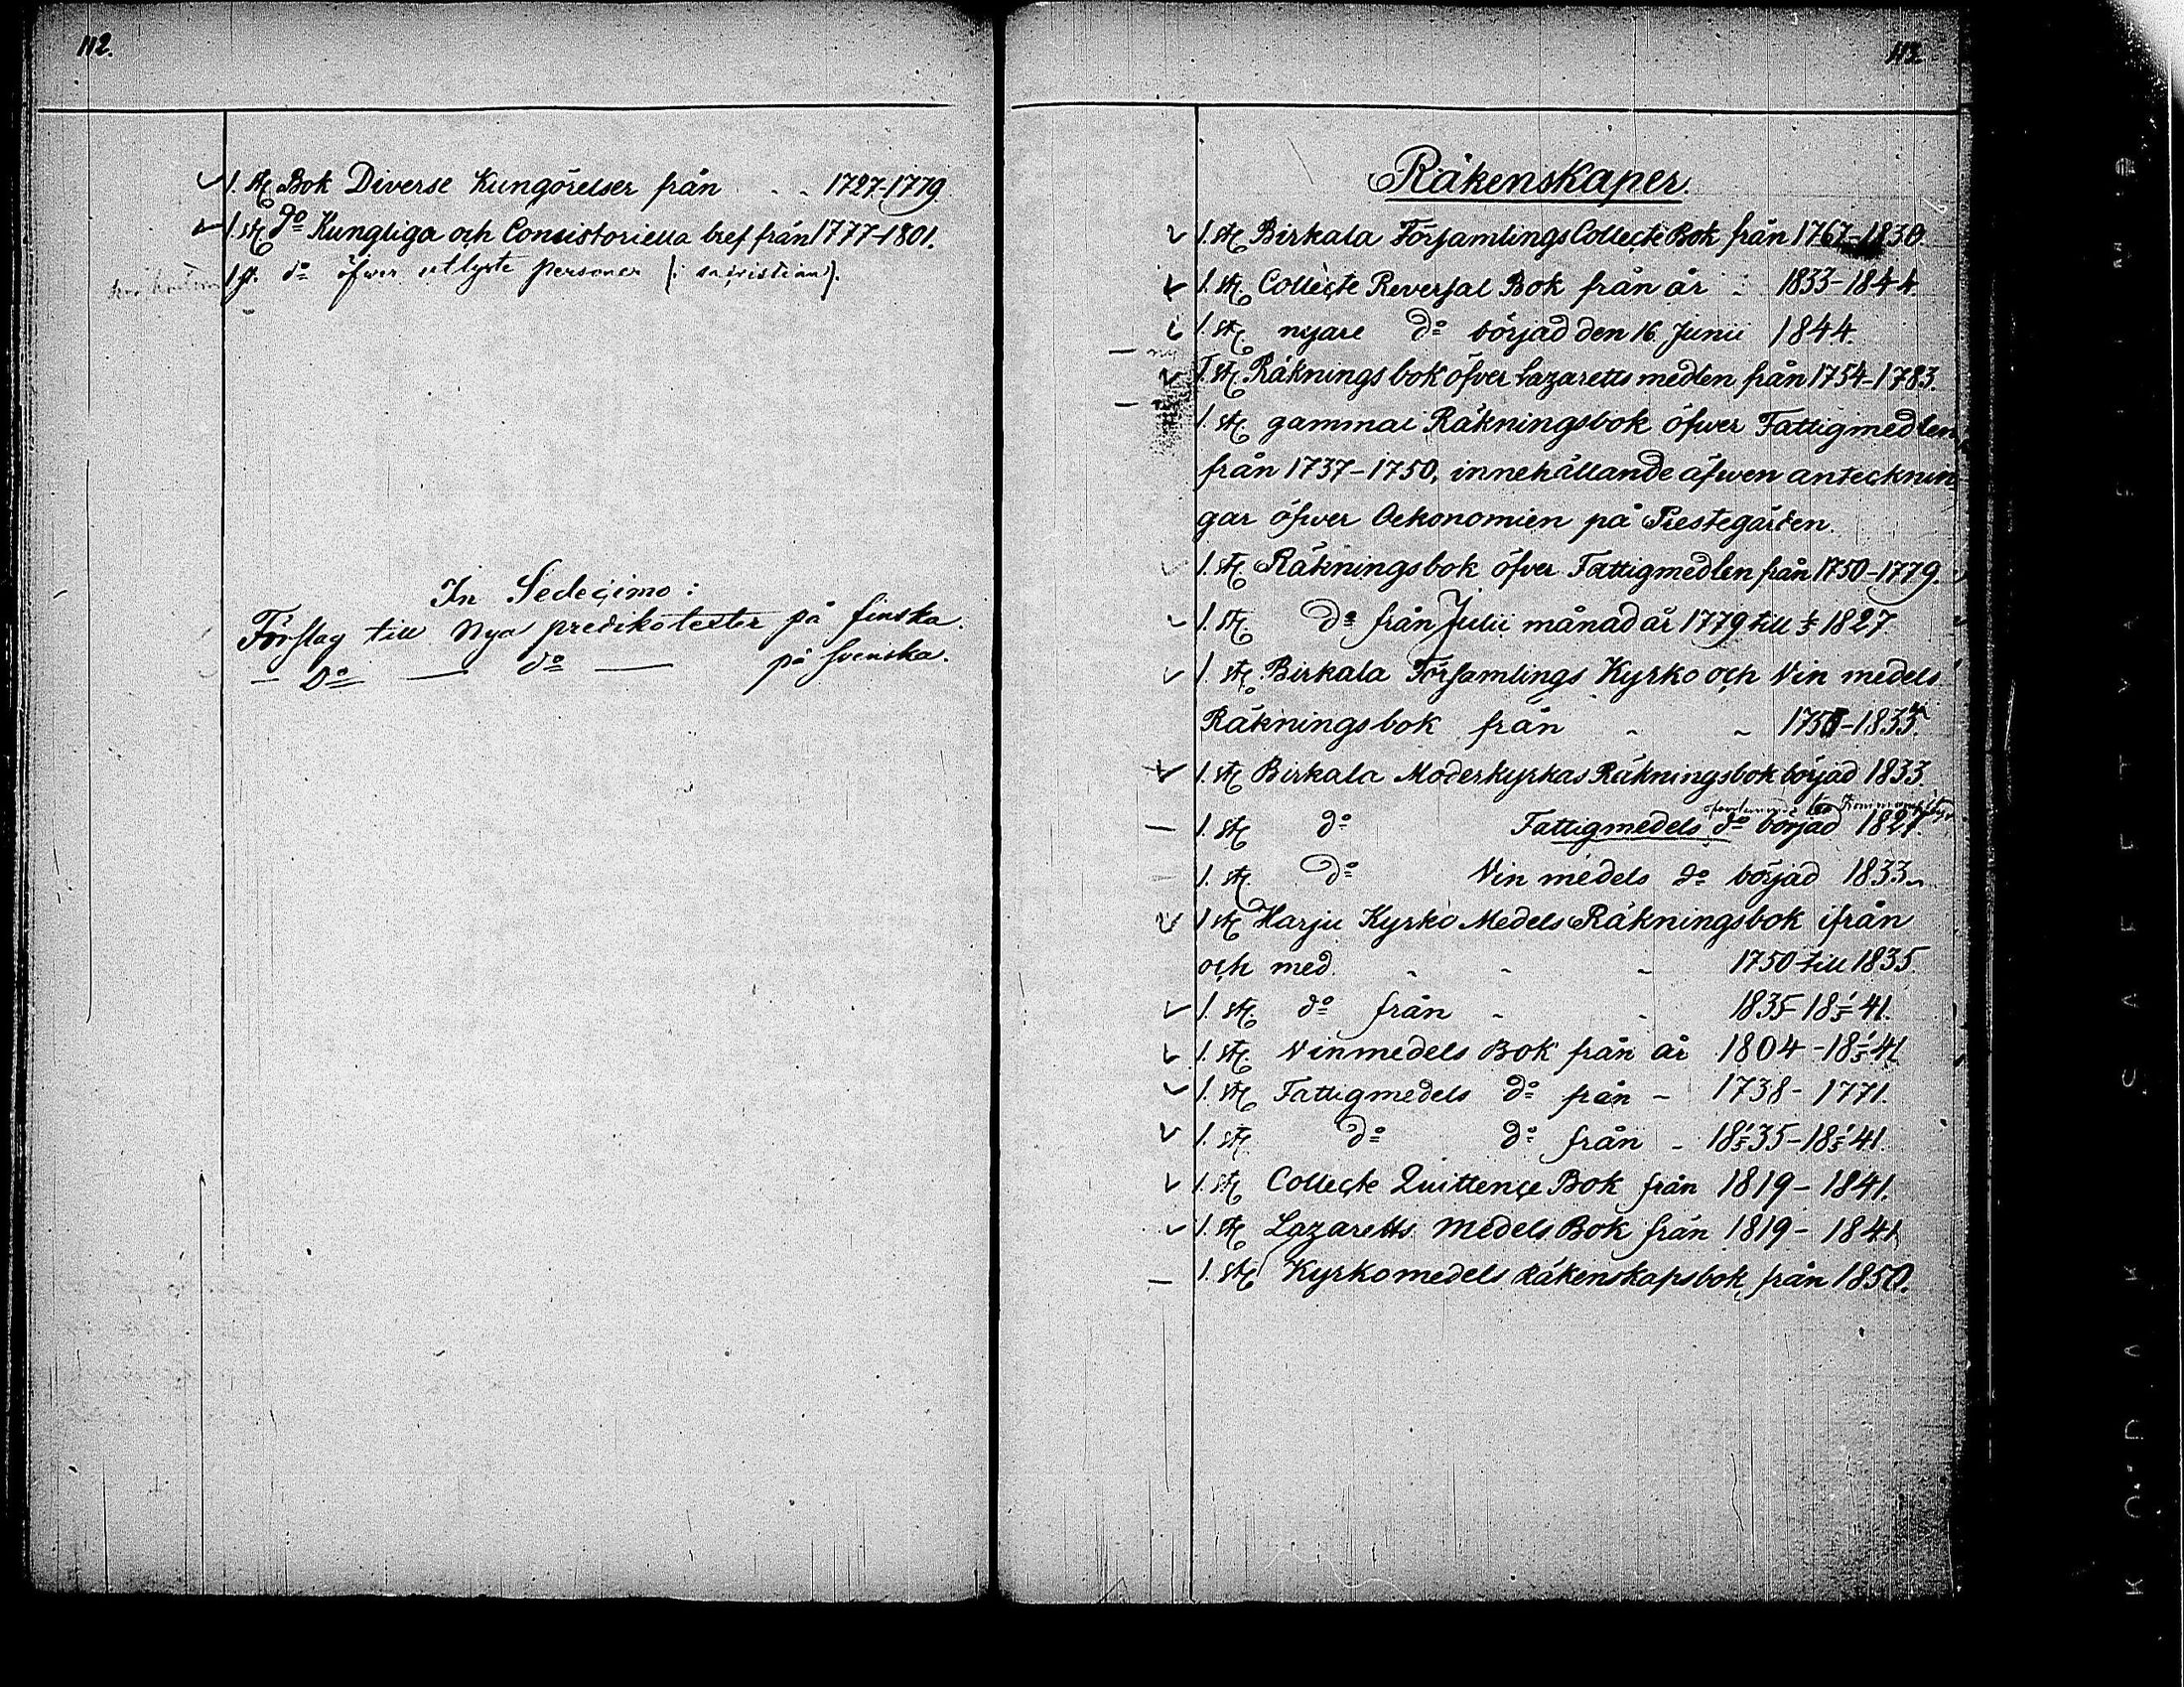 112.
1. st. Bok Diverse Kungörelser från - - 1727-1779
1. st. do Kungliga och Consistoriella bref från 1777-1801.
1 st. do öfwer utlyste personer (i sacristian).
In Sedecimo:
Förslag till Nya predikotexter på finska.
— Do — do — på svenska.
113
Räkenskaper.
1. st. Birkala Församlings Collecte Bok från 1767-1830.
1. st. Collecte Reversal Bok från år - 1833-1844.
1. st. nyare do börjad den 16. Junii 1844.
1. st. Räknings bok öfver Lazaretts medlen från 1754-1783.
1. st. gammal Räkningsbok öfwer Fattigmedlen
från 1737-1750, innehållande äfwen antecknin
gar öfwer Oekonomien på Prestegården.
1. st. Räkningsbok öfver Fattigmedlen från 1750-1779.
1. st. do från Julii månad år 1779 till 1/5 1827.
1. st. Birkala Församlings Kyrko och Vin medels
Räkningsbok från - - 1751-1833.
1. st. Birkala Moderkyrkas Räkningsbok börjad 1833.
1. st. do Fattigmedels do börjad 1827.
1. st. do Vin medels do börjad 1833.
1 st. Harju Kyrko Medels Räkningsbok ifrån
och med - - - 1750 till 1835.
1. st. do från - - 1835-18 1/5 41.
1. st. Vinmedels Bok från år 1804-18 1/5 41
1. st. Fattigmedels do från - 1738-1771.
1. st. do do från - 18 1/5 35-18 1/5 41.
1. st. Collecte Quittence Bok från 1819-1841.
1. st. Lazaretts medels Bok från 1819-1841
1. st. Kyrkomedels Räkenskapsbok från 1850.
KODAK SAFETY FILM